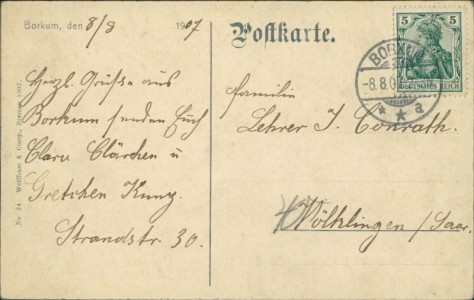 Borkum, den 8/8 1907
Postkarte.
Herzl. Grüße aus
Borkum senden Euch
Clara Clärchen u
Gretchen Kunz.
Strandstr. 30.
Familie
Lehrer J. Conrath.
Völklingen /Saar.
5 5
DEUTSCHES REICH
BORKUM
-8.8.0
* * a
No 24 Wolffram & Comp., 1907.